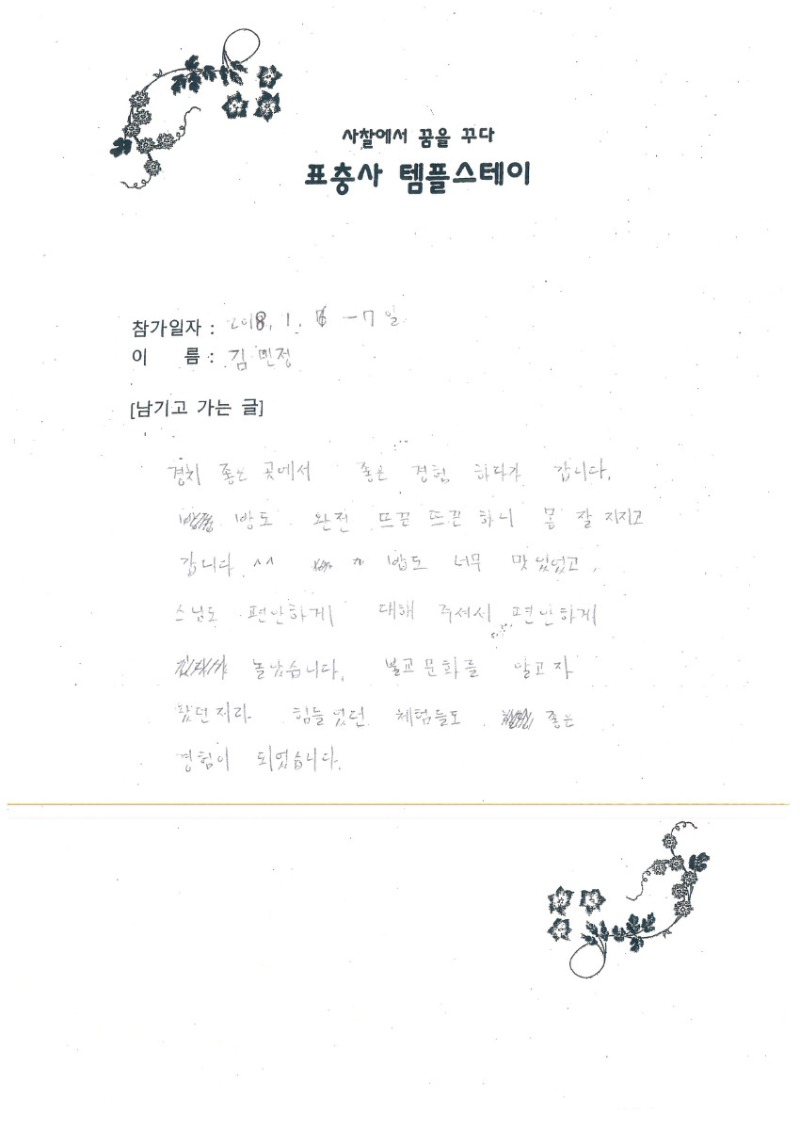 사찰에서 꿈을 꾸다
표충사 템플스테이
참가일자 : 2018. 1. 6 - 7 일
이 름 : 김민정
[남기고 가는 글]
경치 좋은 곳에서 좋은 경험 하다가 갑니다.
방도 완전 뜨끈 뜨끈 하니 몸 잘 지지고
갑니다 ^^ 밥도 너무 맛있었고,
스님도 편안하게 대해 주셔서 편안하게
놀았습니다. 불교문화를 알고자
왔던지라 힘들었던 체험들도 좋은
경험이 되었습니다.